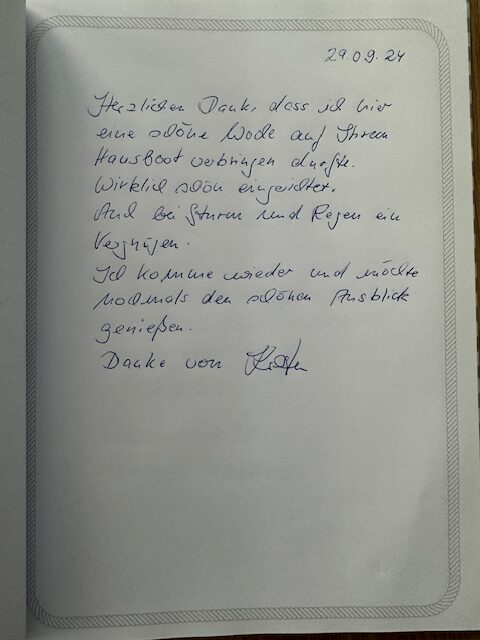 29.09.24
Herzlichen Dank, dass ich hier
eine schöne Woche auf Ihrem
Hausboot verbringen durfte.
Wirklich schön eingerichtet.
Auch bei Sturm und Regen ein
Vergnügen.
Ich komme wieder und möchte
nochmals den schönen Ausblick
genießen.
Danke von